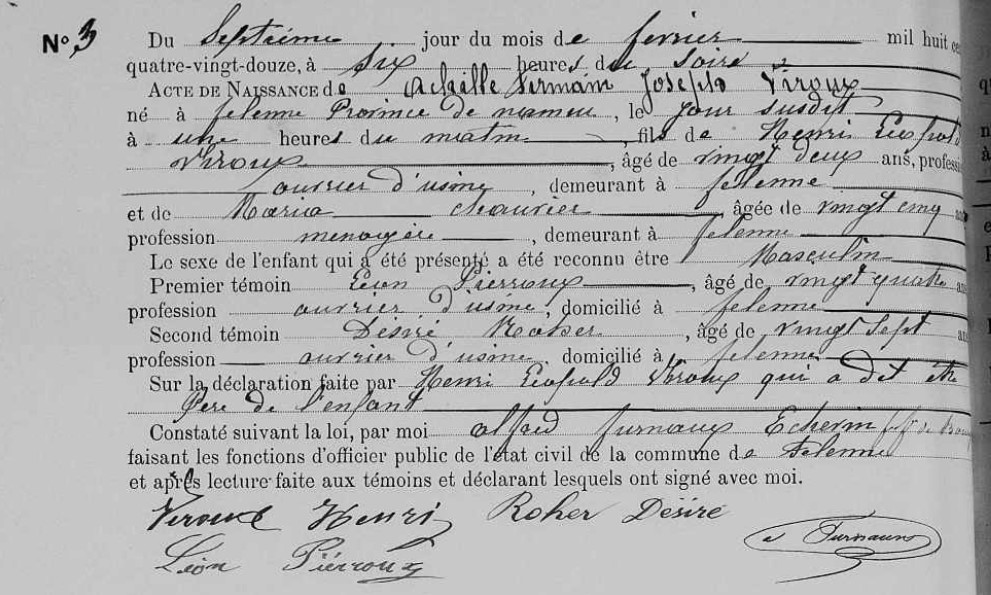 N° 3 Du Septieme jour du mois de fevrier mil huit ce
quatre-vingt-douze, à six heures du soire
ACTE DE NAISSANCE de Achille Firmain Joseph Viroux
né à felenne Province de namur, le jour susdit
à une heures du matin, fils de Henri Leopold
Viroux, âgé de vingt deux ans, profession
ouvrier d'usine, demeurant à felenne
et de Maria chauvier, âgée de vingt cinq an
profession menagère, demeurant à felenne
Le sexe de l'enfant qui a été présenté a été reconnu être Masculin
Premier témoin Léon Pierroux, âgé de vingt quatre an
profession ouvrier d'usine, domicilié à felenne
Second témoin Désiré Roker, âgé de vingt sept an
profession ouvrier d'usine, domicilié à felenne
Sur la déclaration faite par Henri Leopold Viroux qui a dit etre
Pere de l'enfant
Constaté suivant la loi, par moi alfred furnaux Echevin
faisant les fonctions d'officier public de l'état civil de la commune de Felenne
et après lecture faite aux témoins et déclarant lesquels ont signé avec moi.
Viroux Henri Roker Désiré
Léon Piérroux a Furnaux